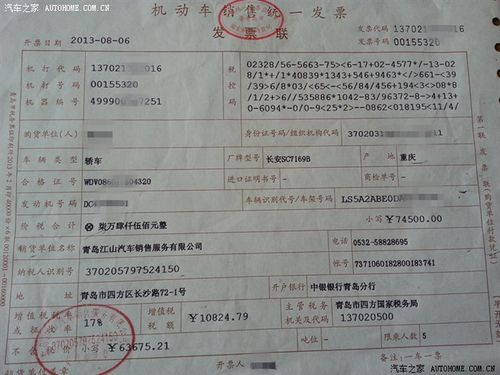 汽车之家
机动车销售统一发票
发票联
开票日期 2013-08-06
发票代码 137021 016
发票号码 00155320
机打代码 137021 016
机打号码 00155320
机器编号 499900 7251
税控码
02328/56-5663-75><6-17+02-4577*/-13-02
8/1*+/1*40839*1343+546+9463*</>661-<39
/39>6/8*03/<65-<-56/84/456+194<3<>08*8
/1/2+>6//535886*1042-83/96372-8->4+13+
0-6094*-0/0-9<25*2>--0862<018195<11/4/
购货单位(人)
身份证号码/组织机构代码 3702031
车辆类型 轿车
厂牌型号 长安SC7169B
产地 重庆
合格证号 WDV086 04320
进口证明书号 -
商检单号 -
发动机号码 DC4 1
车辆识别代号/车架号码 LS5A2ABE0DA
价税合计 ⊗柒万肆仟伍佰元整
小写 ￥74500.00
销货单位名称 青岛江山汽车销售服务有限公司
电话 0532-58828695
纳税人识别号 370205797524150
帐号 7371060182800183741
地址 青岛市四方区长沙路72-1号
开户银行 中银银行青岛分行
增值税税率或征收率 17%
增值税税额 ￥10824.79
主管税务机关及代码 青岛市四方国家税务局 137020500
不含税价 小写 ￥63675.21
吨位 -
限乘人数 5
370205797524150
销货单位盖章
开票人
备注：一车一票
第一联 发票联(购货单位付款凭证)
汽车之家 AUTOHOME.COM.CN